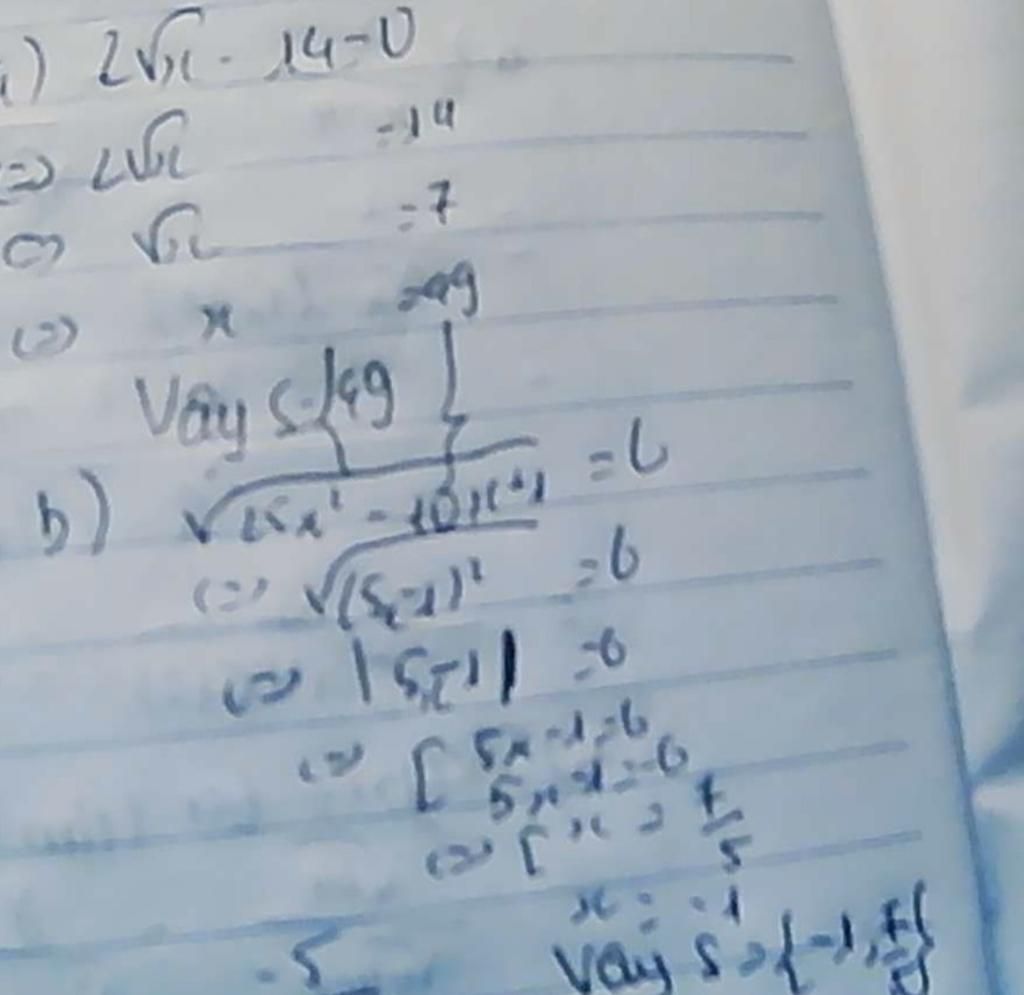 a) 2√x - 14 = 0
⇔ 2√x = 14
⇔ √x = 7
⇔ x = 49
Vậy S = {49}
b) √25x² - 10x + 1 = 6
⇔ √(5x-1)² = 6
⇔ |5x-1| = 6
⇔ [ 5x - 1 = 6
5x - 1 = -6
⇔ [ x = 7/5
x = -1
Vậy S = {-1, 7/5}
-5